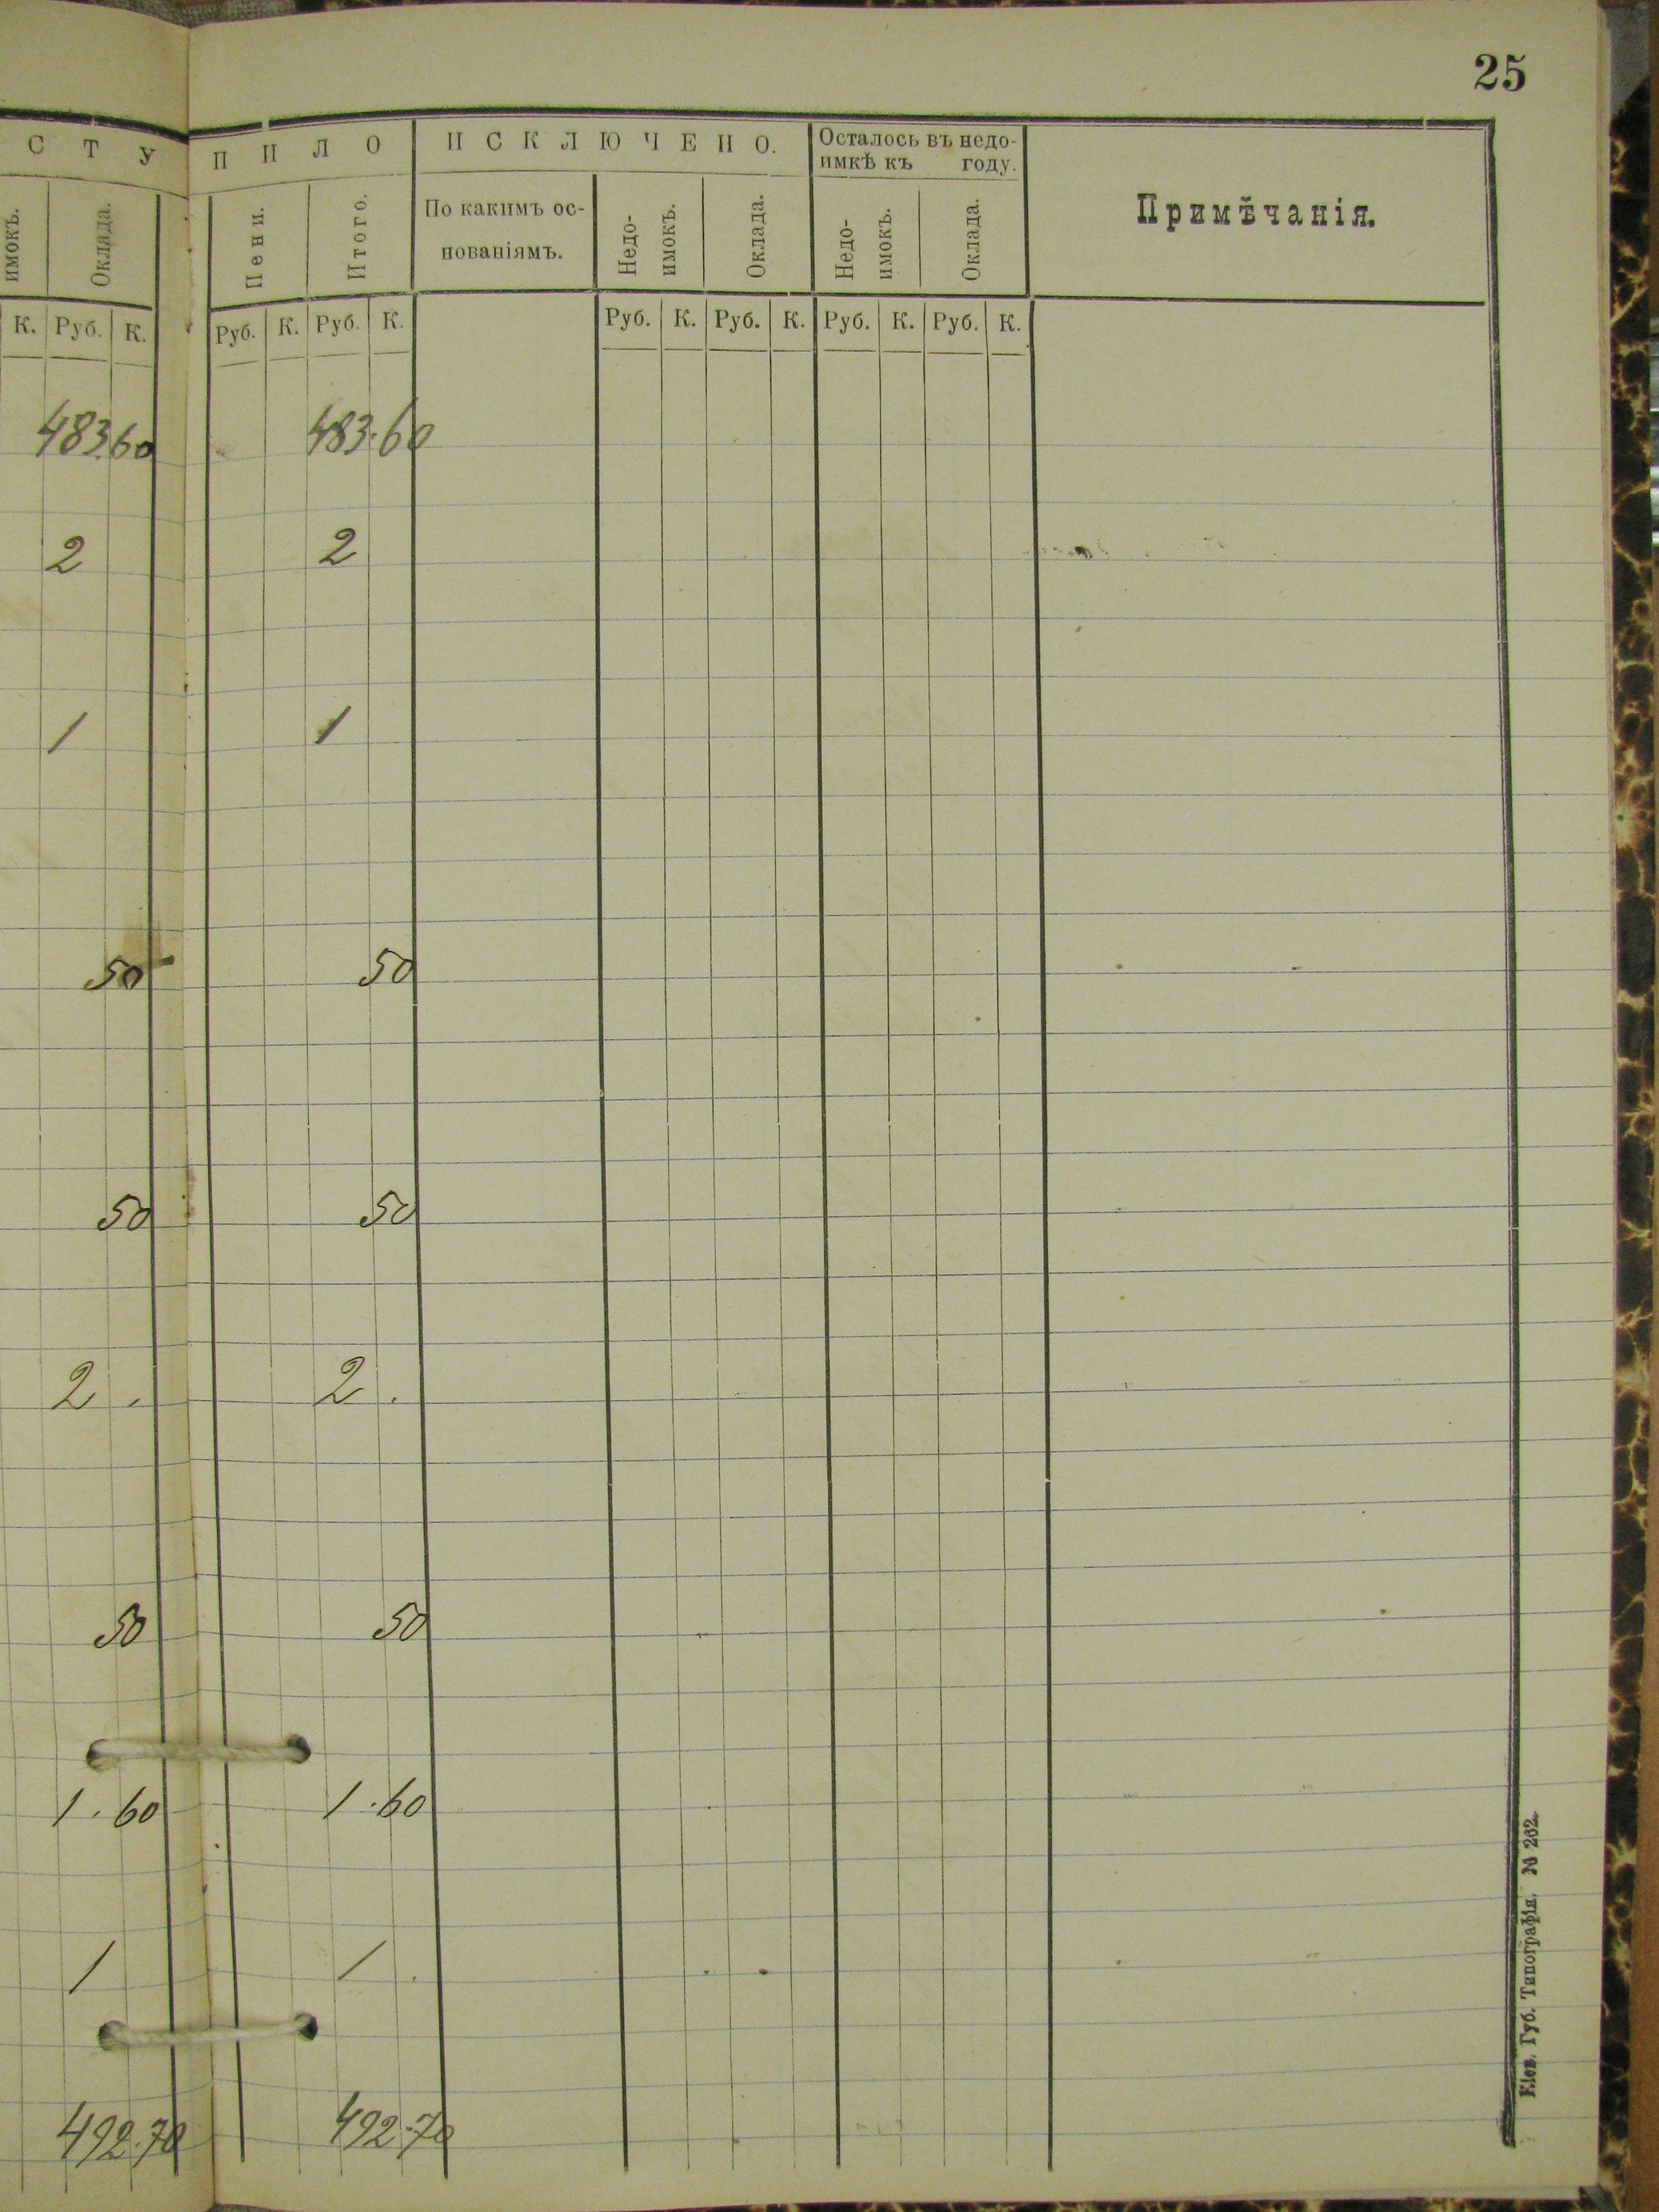 25
СТУПИЛО ИСКЛЮЧЕНО. Осталось въ недо-
имкѣ къ году.
имокъ. Оклада. Пени. Итого. По какимъ ос-
нованіямъ. Недо-
имокъ. Оклада. Недо-
имокъ. Оклада. Примѣчанія.
К. Руб. К. Руб. К. Руб. К. Руб. К. Руб. К. Руб. К. Руб. К.
483.60 483.60
2 2
1 1
50 50
50 50
2 . 2 .
50 50
1.60 1.60
1 1 .
492.70 492.70
Кіев. Губ. Типографія. № 262.